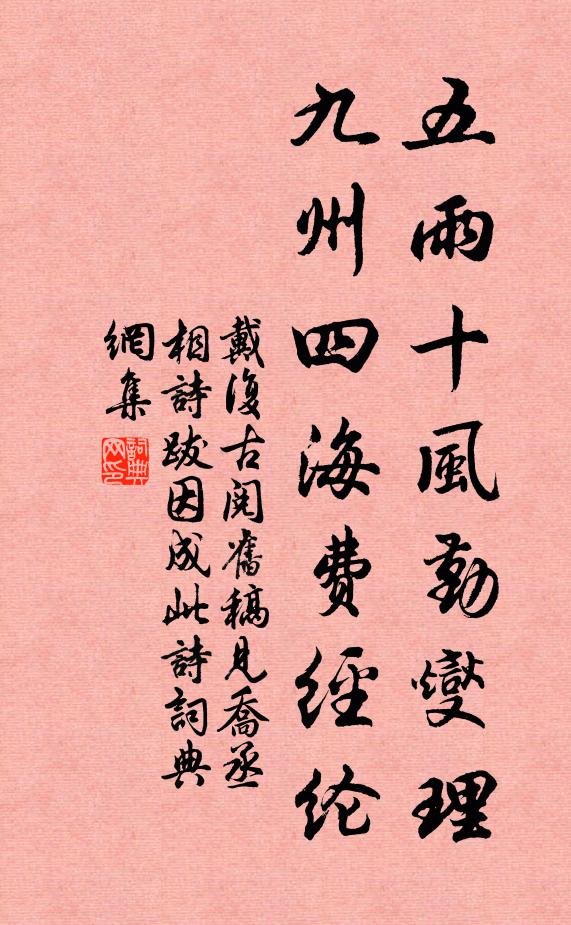 五雨十風勤燮理
九州四海費經纶
戴復古閱舊稿見喬丞
相詩跋因成此詩詞典
網集
詞典
网印